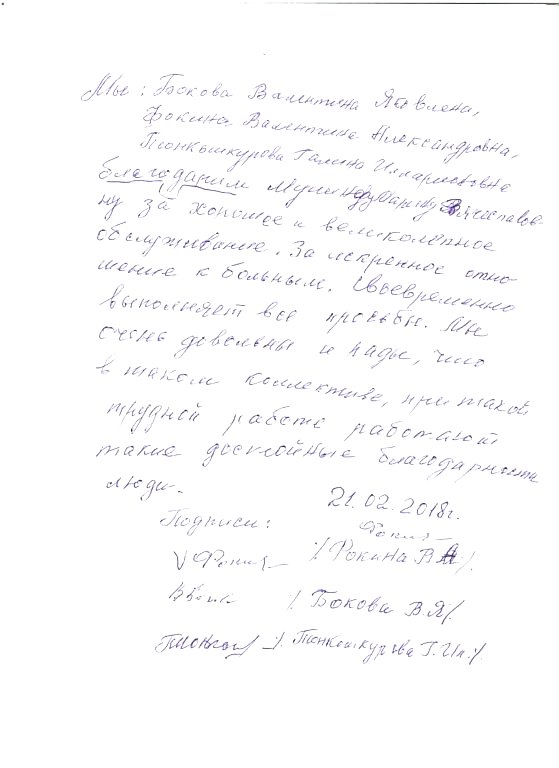 Мы: Бокова Валентина Яковлевна,
Фокина Валентина Александровна,
Тонкошкурова Галина
благодарим Марину Вячеславов-
ну за хорошее и великолепное
обслуживание. За искренное отно-
шение к больным. Своевременно
выполняет все просьбы. Мы
очень довольны и рады, что
в таком коллективе, при такой
трудной работе работают
такие достойные благодарности
люди.
21.02.2018г.
Подписи:
/ Фокина В А /.
/ Бокова В.Я /.
/. Тонкошкурова Г. Ил. /.